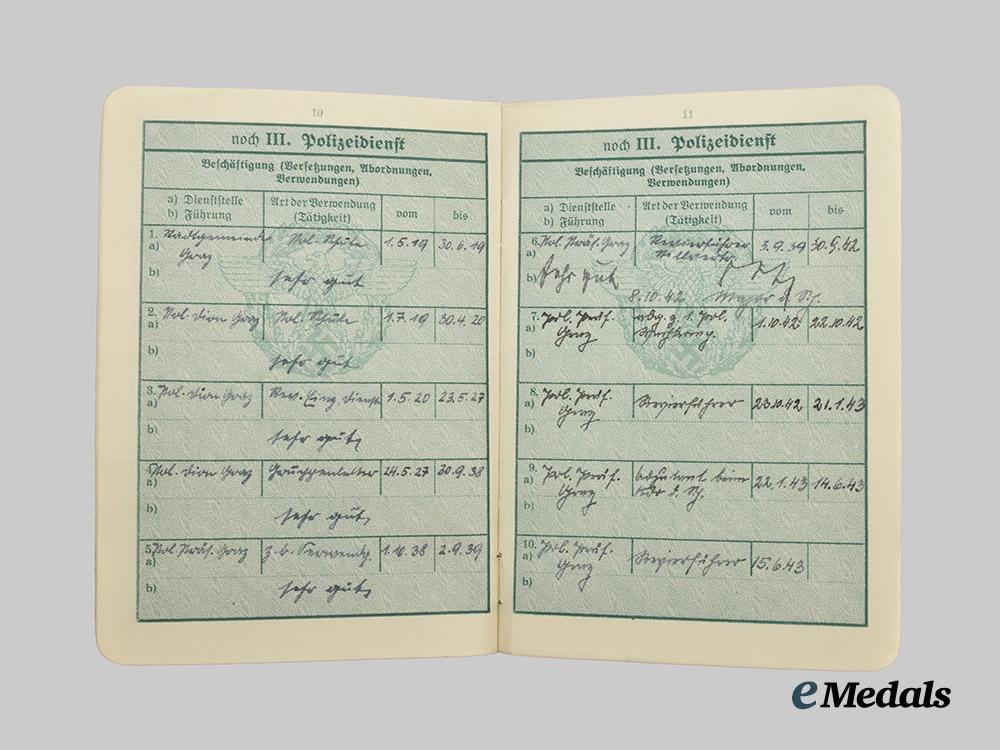 10
noch III. Polizeidienst
Beschäftigung (Versetzungen, Abordnungen,
Verwendungen)
a) Dienststelle
b) Führung
Art der Verwendung
(Tätigkeit)
vom
bis
1. Stadtgemeinde
a) Graz
Pol. Schule
1.5.19
30.6.19
b) sehr gut
2. Pol. Dion Graz
a)
Pol. Schule
1.7.19
30.4.20
b) sehr gut
3. Pol. Dion Graz
a)
Rev. Eing. Dienst
1.5.20
23.5.27
b) sehr gut
4. Pol. Dion Graz
a)
Gruppenleiter
24.5.27
30.9.38
b) sehr gut
5. Pol. Präs. Graz
a)
z. b. Verwendg.
1.10.38
2.9.39
b) sehr gut
11
noch III. Polizeidienst
Beschäftigung (Versetzungen, Abordnungen,
Verwendungen)
a) Dienststelle
b) Führung
Art der Verwendung
(Tätigkeit)
vom
bis
6. Pol. Präs. Graz
a)
Revierführer
3.9.39
30.9.42
b) sehr gut
8.10.42 Major d. Sch.
7. Pol. Präs.
a) Graz
abg. z. 1. Pol.
1.10.42
22.10.42
b)
8. Pol. Präs.
a) Graz
Revierführer
23.10.42
21.1.43
b)
9. Pol. Präs.
a) Graz
Adjutant beim
Kdr d. Sch.
22.1.43
14.6.43
b)
10. Pol. Präs.
a) Graz
Revierführer
15.6.43
b)
eMedals